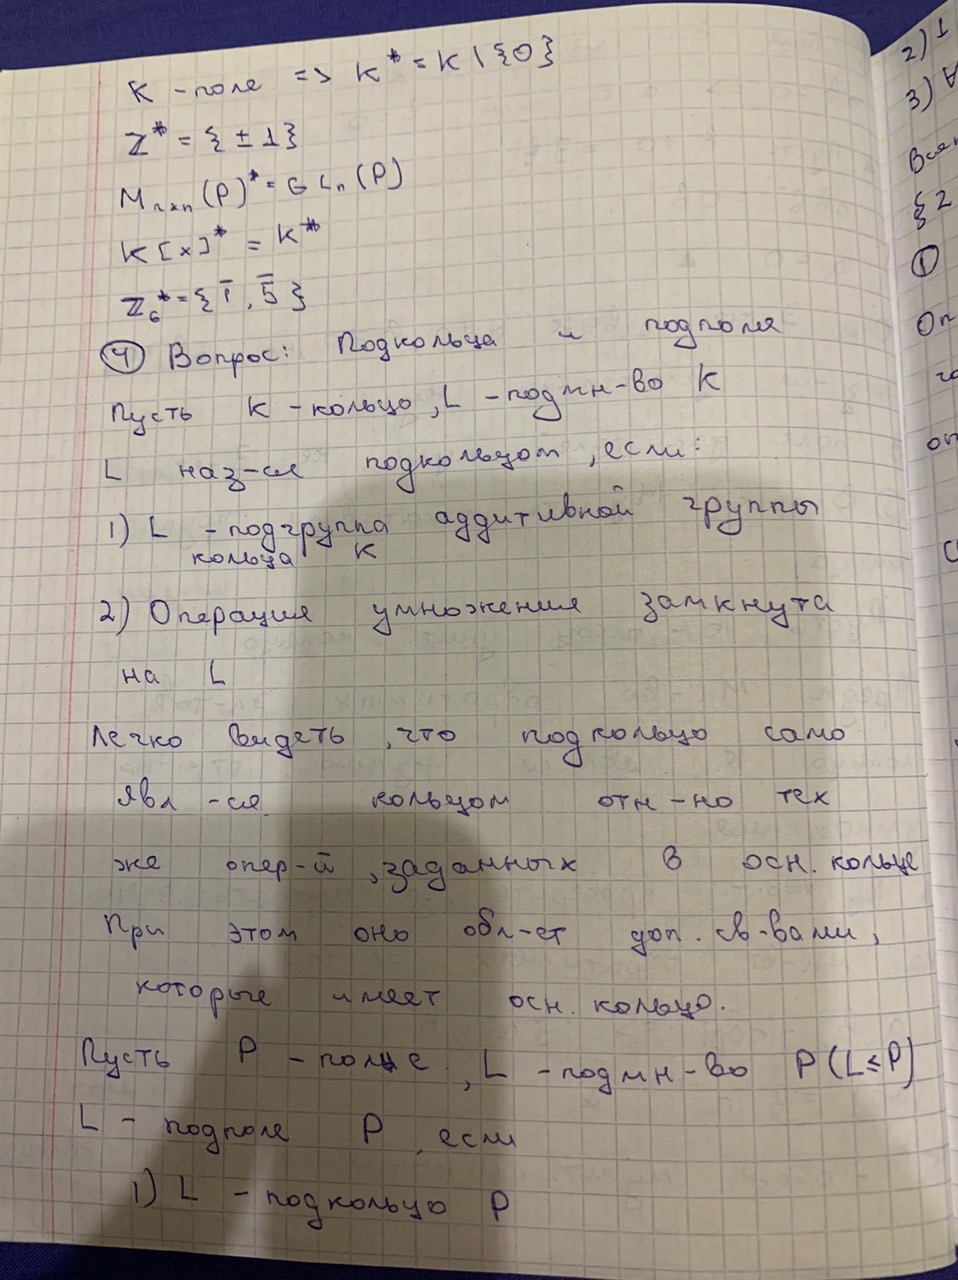 K - поле => K* = K \ {0}
Z* = {±1}
Mₙₓₙ(P)* = GLₙ(P)
K[x]* = K*
Z₆* = {1̄, 5̄}
④ Вопрос: Подкольца и подполя
Пусть K - кольцо, L - подмн-во K
L наз-ся подкольцом, если:
1) L - подгруппа аддитивной группы
кольца K
2) Операция умножения замкнута
на L
Легко видеть, что подкольцо само
явл-ся кольцом отн-но тех
же опер-й, заданных в осн. кольце
При этом оно обл-ет доп. св-вами,
которые имеет осн. кольцо.
Пусть P - поле, L - подмн-во P (L ≤ P)
L - подполе P, если
1) L - подкольцо P
2) 1
3) ∀
§ 2
①
Оп